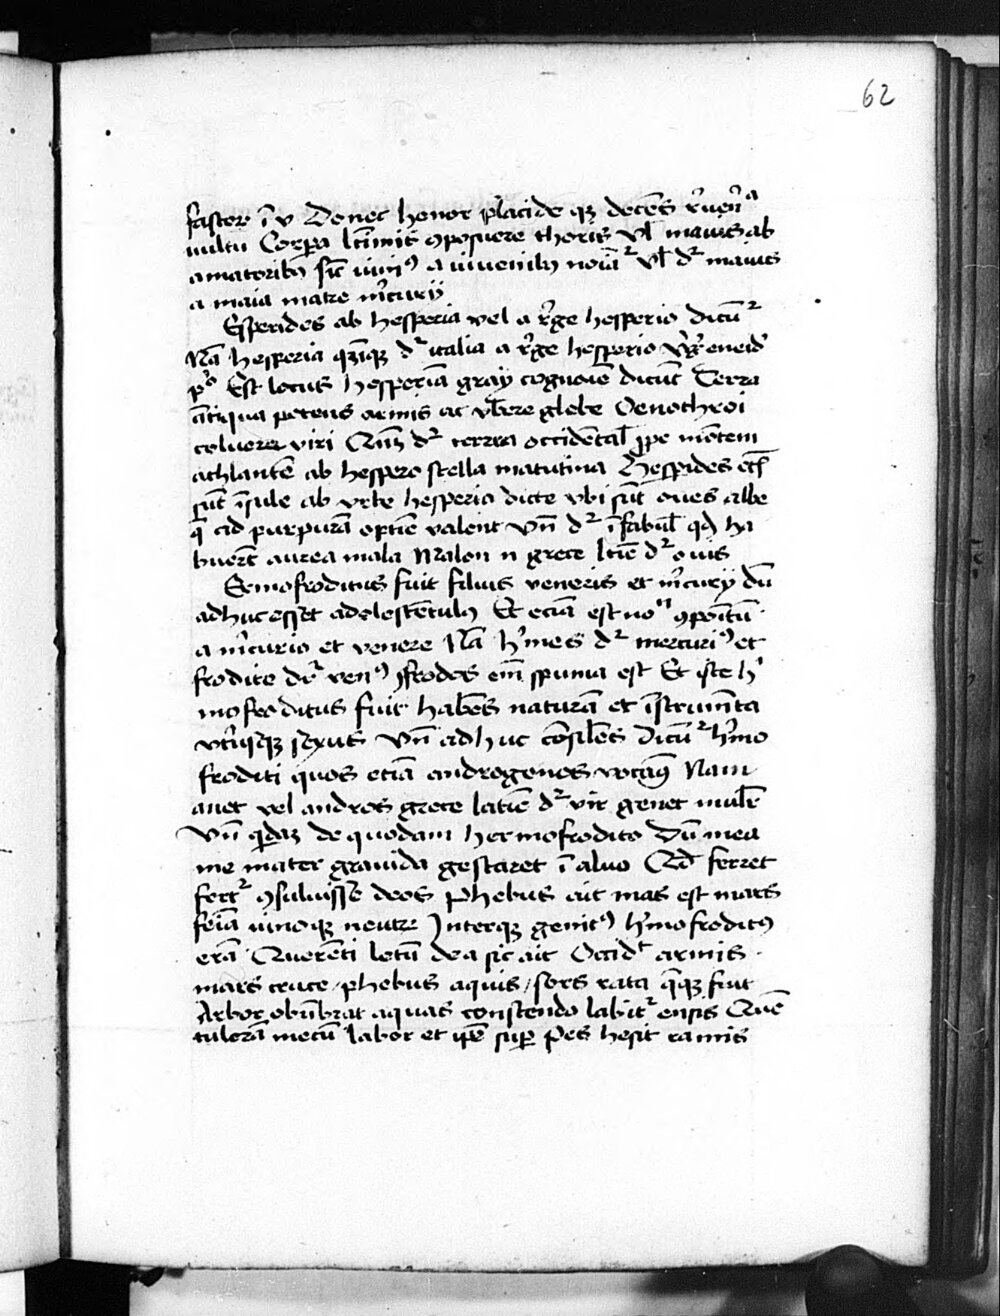 62
fastor ī v Donec honor placide qz decēs rūen͛a
vultu Corpa ltīmis ꝯposuere thoris Vl maius ab
amatoribꝰ sīc iuniꝰ a iuvenibꝰ noīa͛ Vl d͛r maius
a maia matre m͛curij
Esperides ab hesperia vel a r͛ge hesperio dicūr͛
Nā hesperia qz̄iqz d͛r italia a r͛ge hesperio v͛g͛ eneid͛
pº Est locus hesperiā graij cognoīe dicūt Terra
ātiqua potens armis at vb̄ere glebe Oenothroi
coluere viri Quā͛ d͛r terra occidētal̄ ꝓpe mōtem
athlantē ab hespero stella matutina hespides eth̄
sūt īsule ab vrbe hesperia dicte vbi sūt oues albe
q̄ ad purpurā optīe valent vn̄ d͛r ī fabul̄ qd̄ hi
buerūt aurea mala Malon n̄ grece ltīe d͛r ouis
Ermofroditus fuit filius veneris et m͛curij dū
adhuc esset adolescētulꝰ Et eciā est noͫ ꝯpoītū
a m͛curio et venere Nā h͛mes d͛r mercuriꝰ et
frodite d͛r venꝰ ꝯfrodos em̄ spuma est Et iste h͛
mofroditus fuit habēs naturā et īstrumēta
vt͛iusqz sexus Vn̄ adhuc cōsil̄es dicūr͛ h͛mo
froditi quos etiā androgenos vocamꝰ Nam
anet vel andros grece latīe d͛r vir genet mul̄r
Vn̄ qd̄az de quodam hermofrodito Dū mea
me mater grauida gestaret ī aluo Qd̄ ferret
fert͛r ꝯsuluisse deos Phebus ait mas est mars
feīa iunoqz neutr͛ Interqz genitꝰ h͛mofroditꝰ
erā Querēti letū dea sic ait Occid͛t armis
mars cruce phebus aquis sors rata q̄qz fuit
Arbor obūbrat aquas conscendo labit͛r ensis Quē
tulerā mecū labor et ip̄e suꝑ Pes hesit ramis